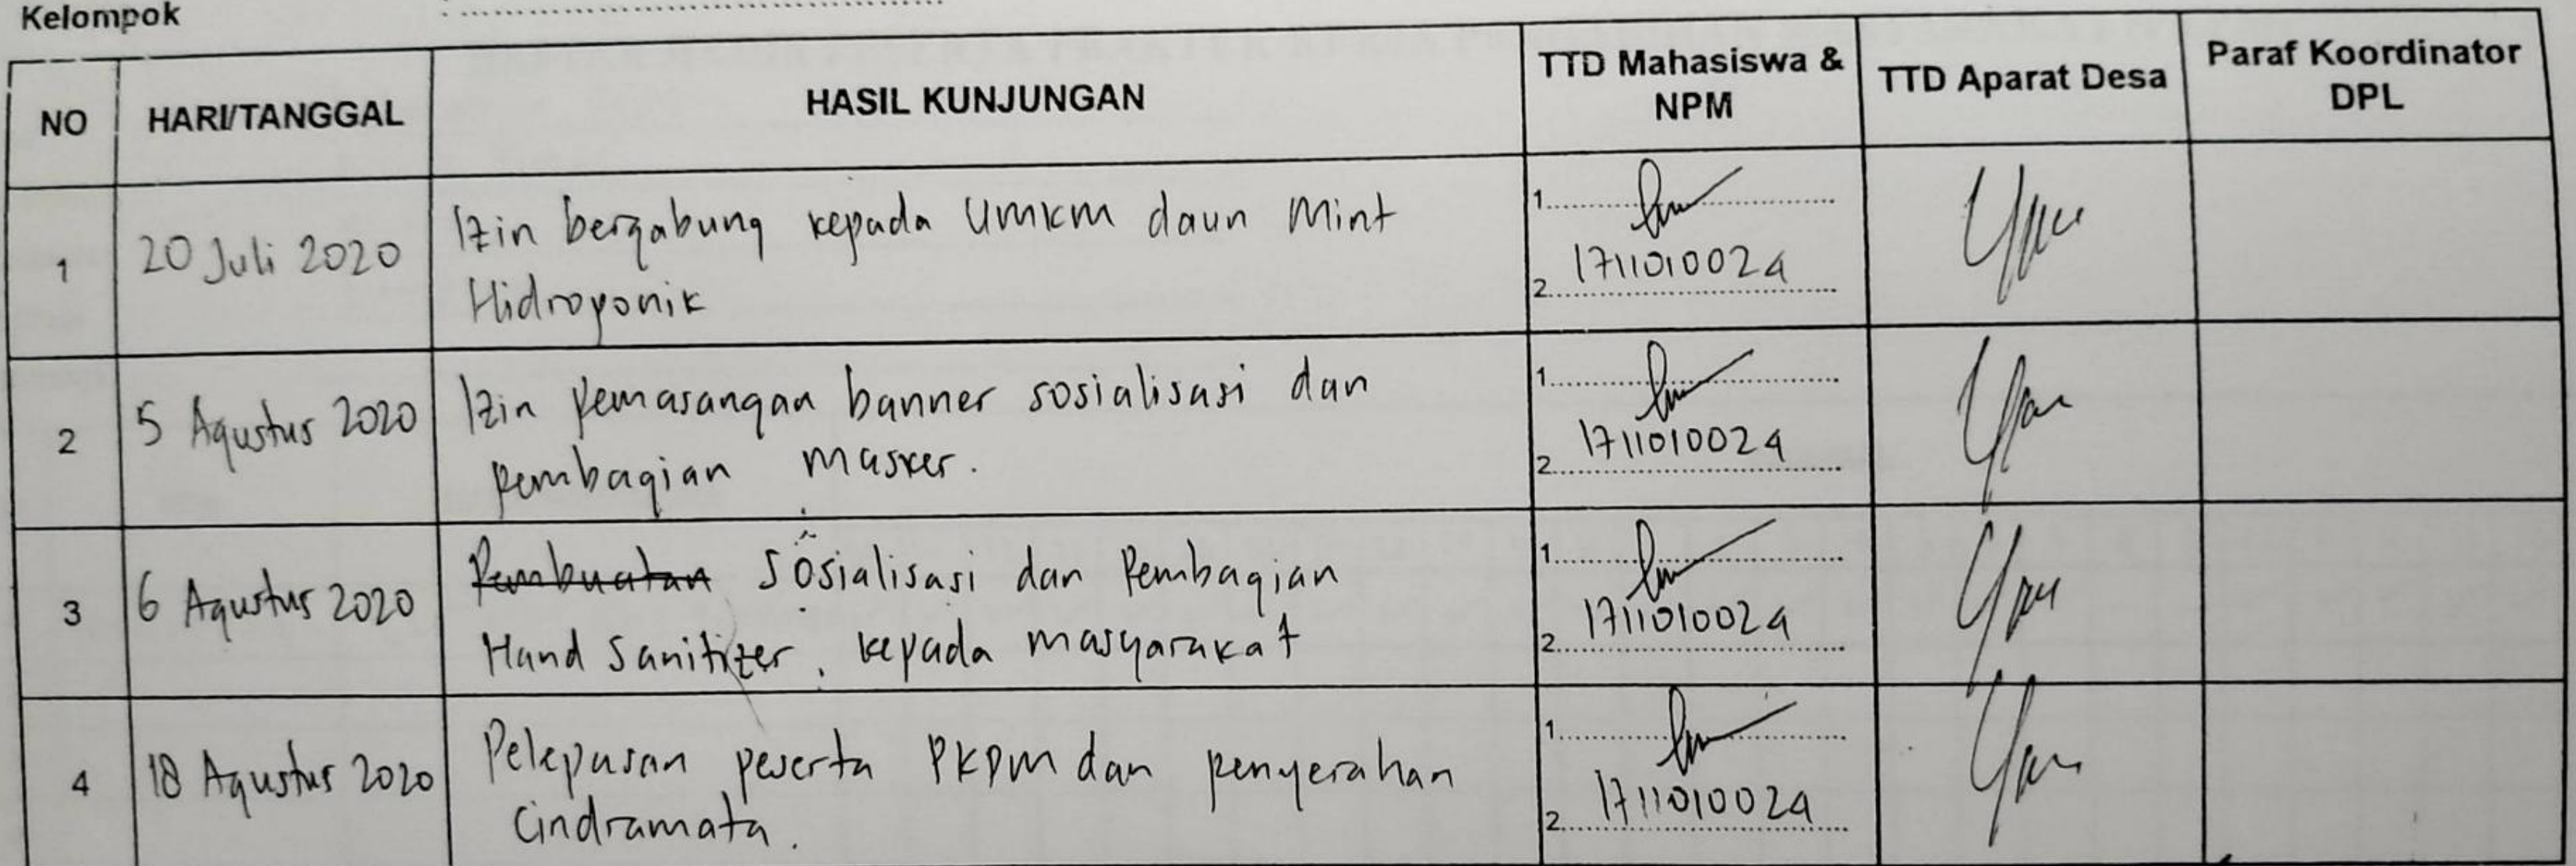 Kelompok : ........................................
NO HARI/TANGGAL HASIL KUNJUNGAN TTD Mahasiswa & NPM TTD Aparat Desa Paraf Koordinator DPL
1 20 Juli 2020 Izin bergabung kepada UMKM daun Mint
Hidroponik
1.
2. 1711010024
2 5 Agustus 2020 Izin pemasangan banner sosialisasi dan
pembagian masker.
1.
2. 1711010024
3 6 Agustus 2020 Pembuatan Sosialisasi dan Pembagian
Hand Sanitizer. kepada masyarakat
1.
2. 1711010024
4 18 Agustus 2020 Pelepasan peserta PKPM dan penyerahan
Cindramata.
1.
2. 1711010024